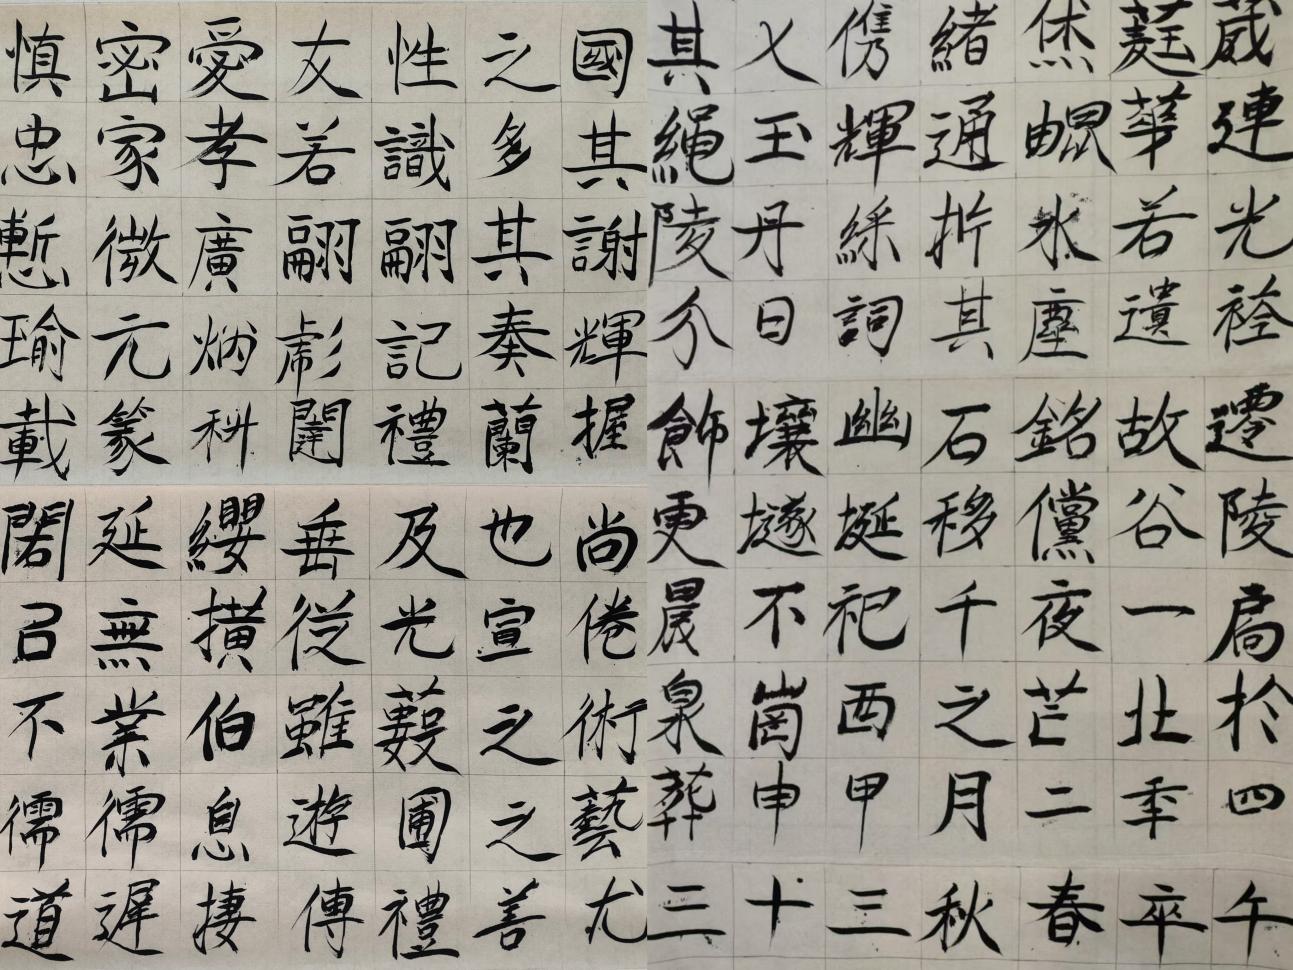 尤善禮傳捿遲道
藝之圃遊息儒儒
術之藪雖伯業不
倦宣光從撗無召
尚也及垂纓延閣
握蘭禮闥科篆載
輝奏記彪炳元瑜
謝其翩翩廣微慙
其多識若孝家忠
國之性友愛密慎
午卒春秋三十三
四季二月甲申葬
於北芒之西崗泉
扃一夜千祀不晨
陵谷儻移埏墬更
遷故銘石幽壤飾
衿遺塵其詞曰分
光若氷折綵丹陵
連華鯤通輝玉繩
葳蕤烋緒儁乂其